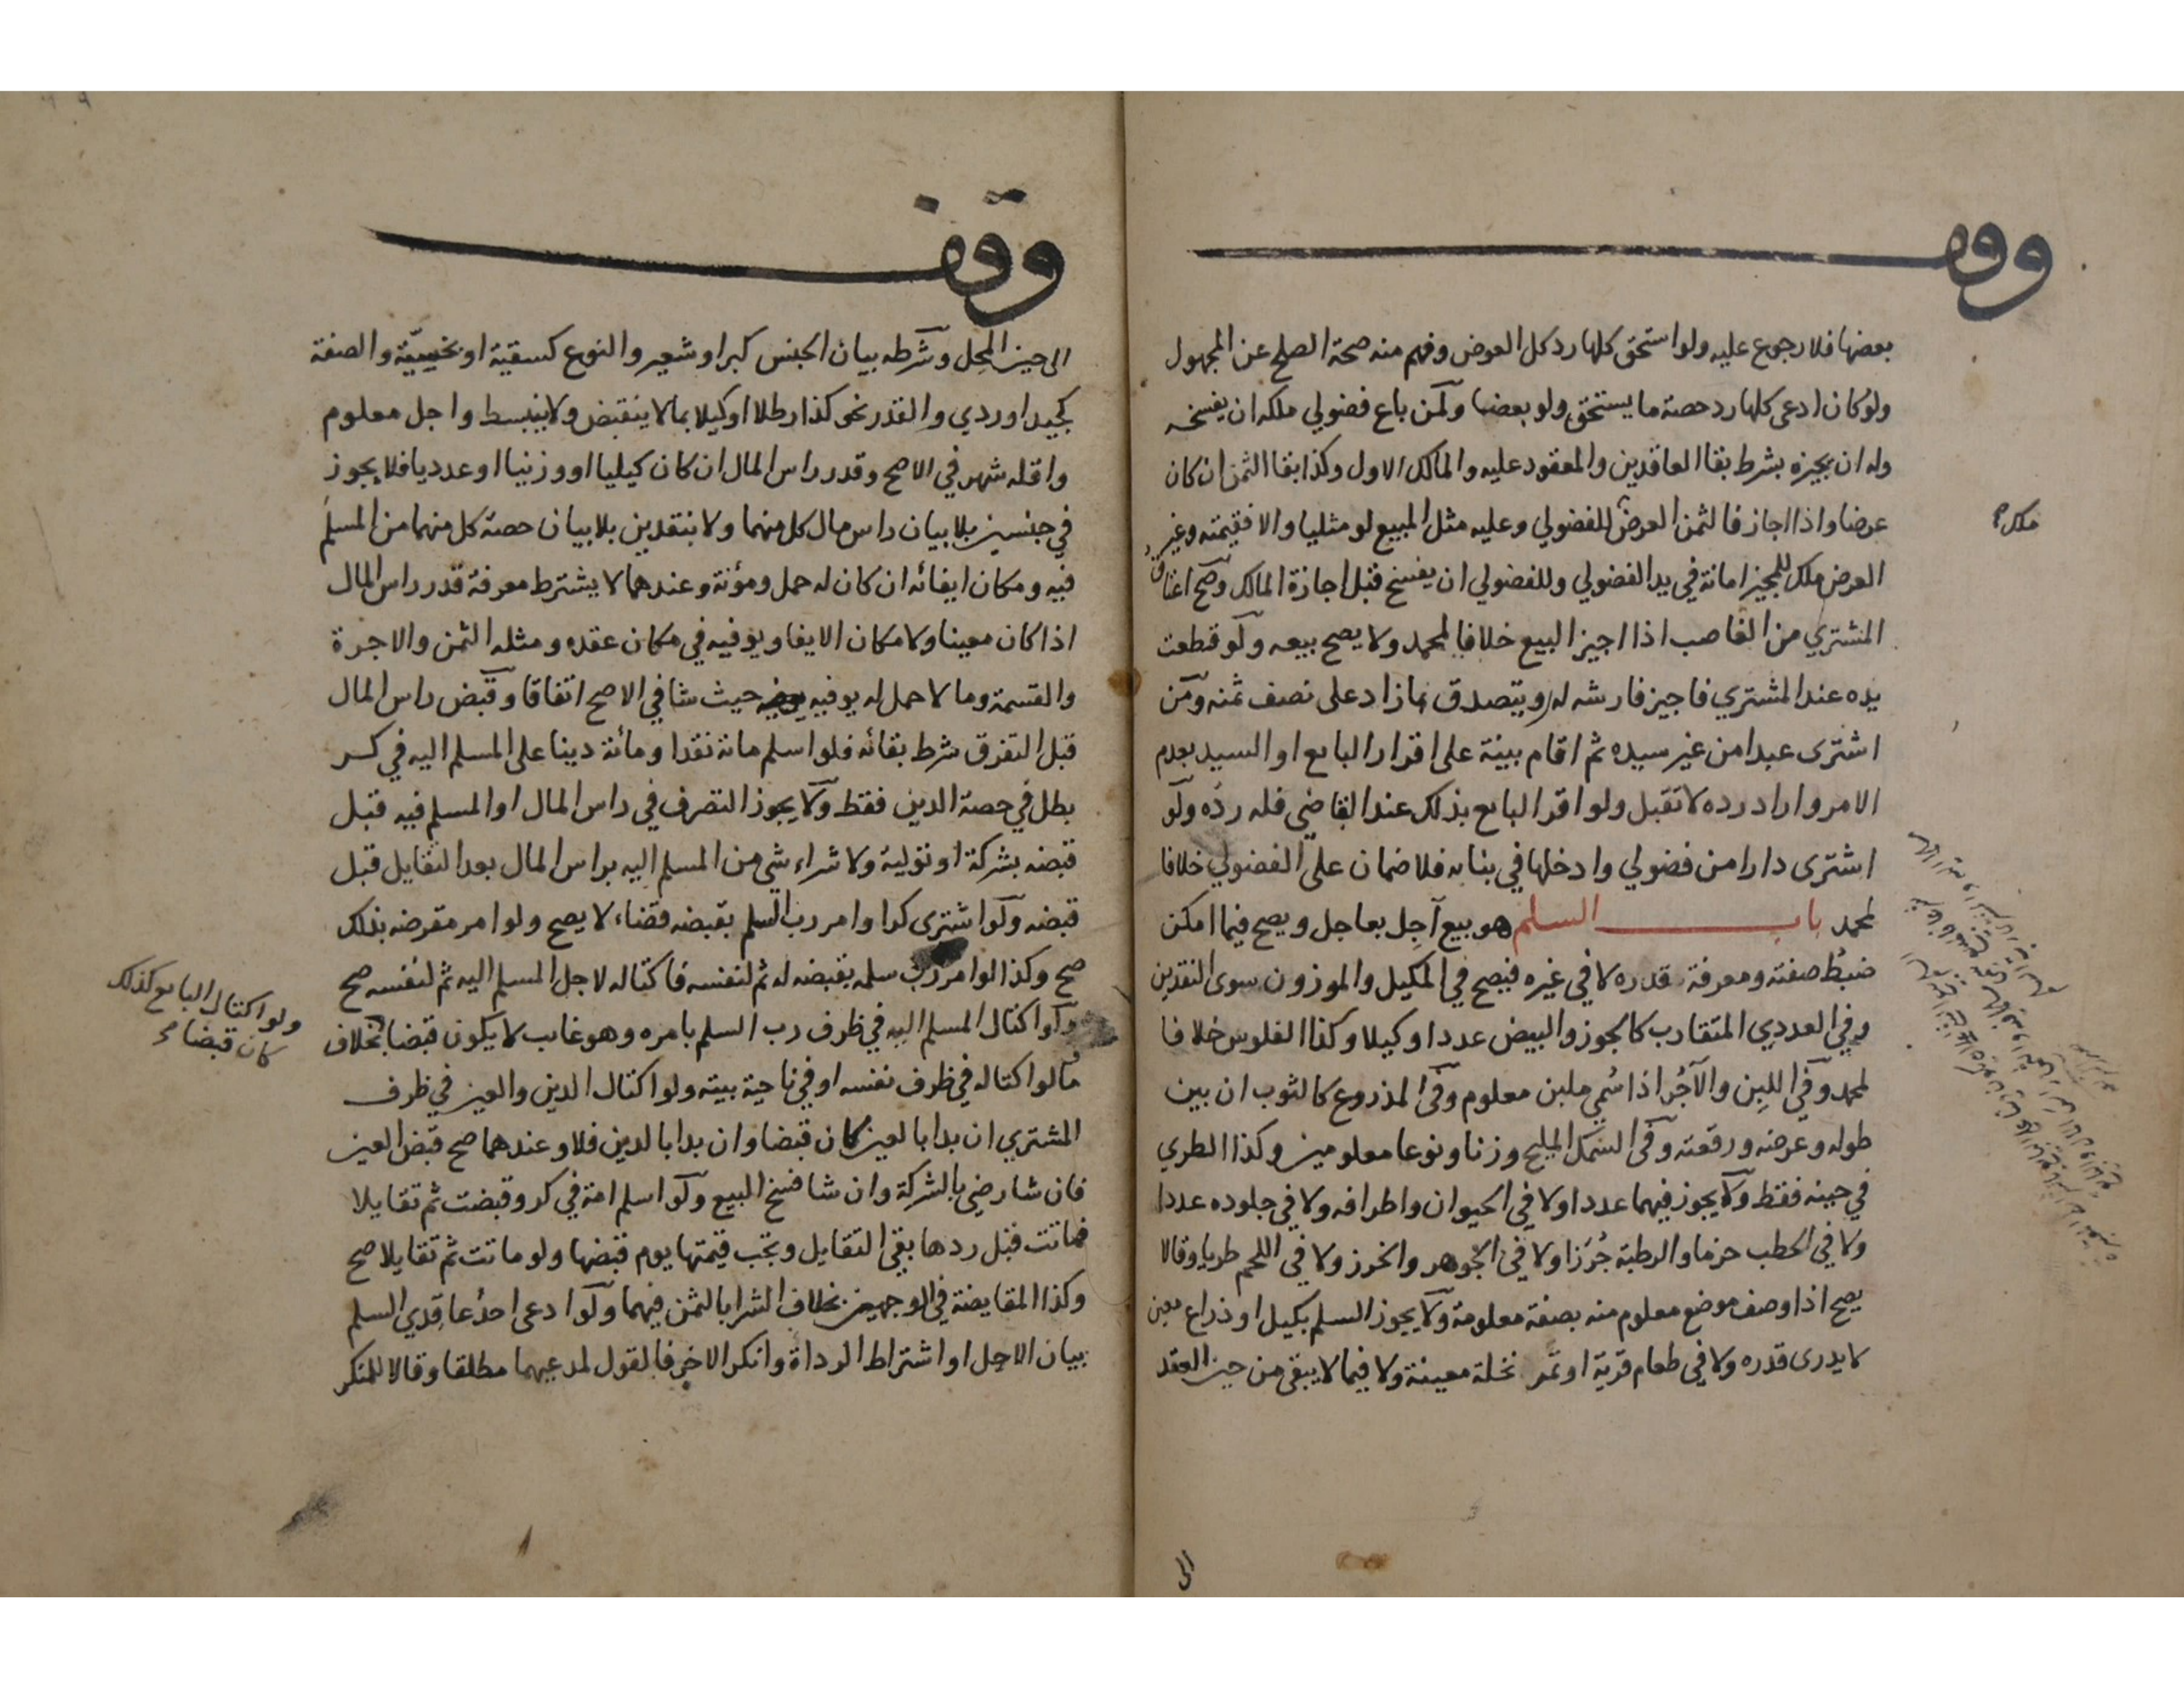 وقف
بعضها فلا رجوع عليه ولو استحق كلها رد كل العوض وفهم منه صحة الصلح عن المجهول
ولو كان ادعى كلها رد حصة ما يستحق ولو بعضا ولمن باع فضولي ملكه ان يفسخه
وله ان يجيزه بشرط بقا العاقدين والمعقود عليه والمالك الاول وكذا بقا الثمن ان كان
عرضا واذا اجاز فالثمن العرض للفضولي وعليه مثل المبيع لو مثليا والا فقيمته وغير
العرض ملك للمجيز امانة في يد الفضولي وللفضولي ان يفسخ قبل اجازة المالك وصح اعتاق
المشتري من الغاصب اذا اجيز البيع خلافا لمحمد ولا يصح بيعه ولو قطعت
يده عند المشتري فاجيز فارشه له ويتصدق بمازاد على نصف ثمنه ومن
اشترى عبدا من غير سيده ثم اقام بينة على اقرار البايع او السيد بعدم
الامر واراد رده لا تقبل ولو اقر البايع بذلك عند القاضي فله رده ولو
اشترى دارا من فضولي وادخلها في بنايه فلا ضمان على الفضولي خلافا
لمحمد باب السلم هو بيع آجل بعاجل ويصح فيما امكن
ضبط صفته ومعرفة قدره لا في غيره فيصح في المكيل والموزون سوى النقدين
وفي العددي المتقارب كالجوز والبيض عددا وكيلا وكذا الفلوس خلافا
لمحمد وفي اللبن والآجر اذا سمي ملبن معلوم وفي المذروع كالثوب ان بين
طوله وعرضه ورقعته وفي السمك المليح وزنا ونوعا معلومين وكذا الطري
في حينه فقط ولا يجوز فيهما عددا ولا في الحيوان واطرافه ولا في جلوده عددا
ولا في الحطب حزما والرطبة جرزا ولا في الجوهر والخرز ولا في اللحم طريا وقالا
يصح اذا وصف موضع معلوم منه بصفة معلومة ولا يجوز السلم بكيل او ذراع معين
لا يدرى قدره ولا في طعام قرية او تمر نخلة معينة ولا فيما لا يبقى من حين العقد
الى
وقف
الى حين المحل وشرطه بيان الجنس كبر او شعير والنوع كسقية او بخسية والصفة
كجيد او ردي والقدر نحو كذا رطلا او كيلا بما لا ينقبض ولا ينبسط واجل معلوم
واقله شهر في الاصح وقدر راس المال ان كان كيليا او وزنيا او عدديا فلا يجوز
في جنسين بلا بيان راس مال كل منهما ولا بنقدين بلا بيان حصة كل منهما من المسلم
فيه ومكان ايفائه ان كان له حمل ومؤنة وعندهما لا يشترط معرفة قدر راس المال
اذا كان معينا ولا مكان الايفا ويوفيه في مكان عقده ومثله الثمن والاجرة
والقسمة وما لا حمل له يوفيه حيث شا في الاصح اتفاقا وقبض راس المال
قبل التفرق شرط بقائه فلو اسلم مائة نقدا ومائة دينا على المسلم اليه في كر
بطل في حصة الدين فقط ولا يجوز التصرف في راس المال او المسلم فيه قبل
قبضه بشركة او تولية ولا شراء شي من المسلم اليه براس المال بعد التقايل قبل
قبضه ولو اشترى كرا وامر رب السلم بقبضه قضاء لا يصح ولو امر مقرضه بذلك
صح وكذا لو امر رب سلمه بقبضه له ثم لنفسه فاكتاله لاجل المسلم اليه ثم لنفسه صح
ولو اكتال المسلم اليه في ظرف رب السلم بامره وهو غايب لا يكون قبضا بخلاف
ما لو اكتاله في ظرف نفسه او في ناحية بيته ولو اكتال الدين والعين في ظرف
المشتري ان بدا بالعين كان قبضا وان بدا بالدين فلا وعندهما صح قبض العين
فان شا رضي بالشركة وان شا فسخ البيع ولو اسلم امة في كر وقبضت ثم تقايلا
فماتت قبل ردها بقي التقايل وتجب قيمتها يوم قبضها ولو ماتت ثم تقايلا صح
وكذا المقايضة في الوجهين بخلاف الشرا بالثمن فيهما ولو ادعى احد عاقدي السلم
بيان الاجل او اشتراط الرداة وانكر الاخر فالقول لمدعيهما مطلقا وقالا للمنكر
ولو اكتال البايع كذلك
كان قبضا